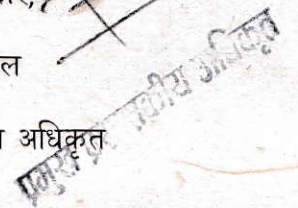 ल
अधिकृत
प्रमुख प्रशासकीय अधिकृत